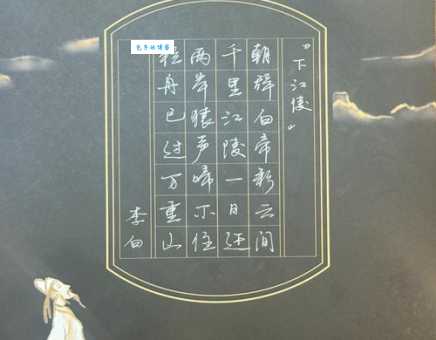 《下江陵》
朝辞白帝彩云间
千里江陵一日还
两岸猿声啼不住
轻舟已过万重山
李白